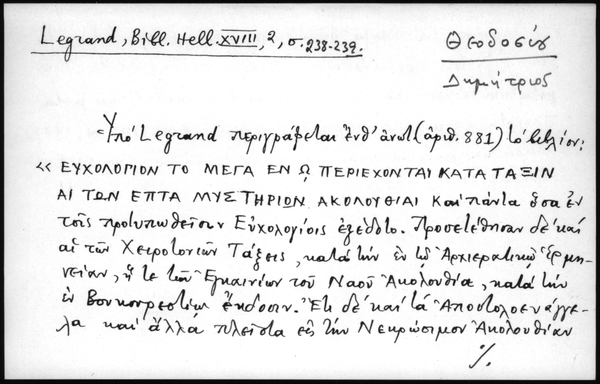 Legrand, Bibl. Hell. XVIII, 2, σ. 238-239.
Θεοδοσίου
Δημήτριος
Ὑπό Legrand περιγράφεται ἐνθ' ἀνωτ. (ἀριθ. 881) τό βιβλίον:
«ΕΥΧΟΛΟΓΙΟΝ ΤΟ ΜΕΓΑ ΕΝ ῼ ΠΕΡΙΕΧΟΝΤΑΙ ΚΑΤΑ ΤΑΞΙΝ
ΑΙ ΤΩΝ ΕΠΤΑ ΜΥΣΤΗΡΙΩΝ ΑΚΟΛΟΥΘΙΑΙ καί πάντα ὅσα ἐν
τοῖς προτυπωθεῖσιν Εὐχολογίοις ἐξέδοτο. Προσετέθησαν δέ καί
αἱ τῶν Χειροτονιῶν Τάξεις, κατά τήν ἐν τῷ Ἀρχιερατικῷ Ἑρμη-
νείαν, ἥ τε τῶν Ἐγκαινίων τοῦ Ναοῦ Ἀκολουθία, κατά τήν
ἐν Βουκουρεστίῳ ἔκδοσιν. Ἔτι δέ καί τά Ἀποστολοευάγγε-
λα καί ἄλλα πλεῖστα εἰς τήν Νεκρώσιμον Ἀκολουθίαν
·/.